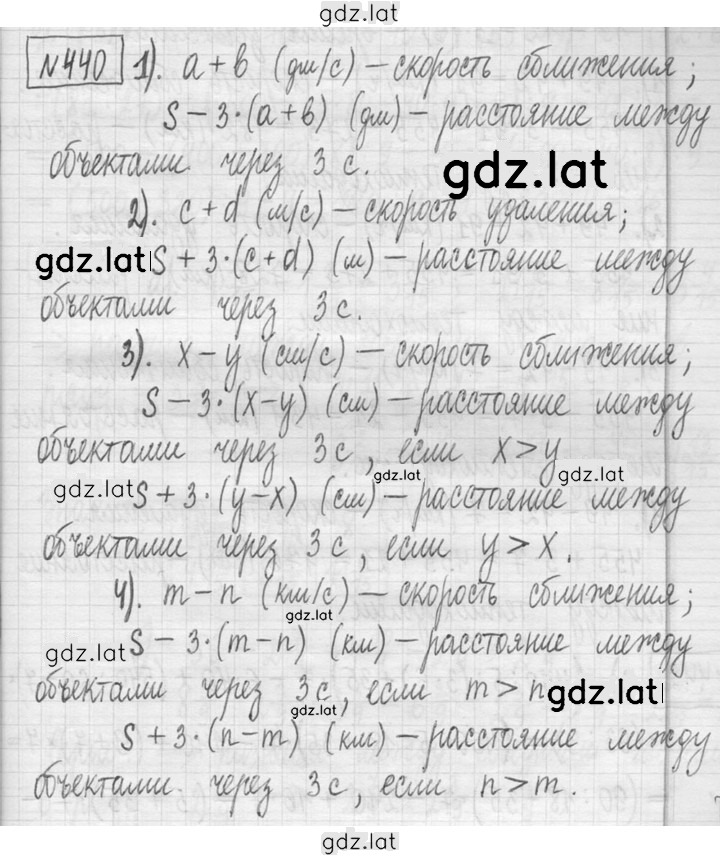 gdz.lat
№440 1). a + b (дм/с) – скорость сближения;
S – 3·(a+b) (дм) – расстояние между
объектами через 3 с.
gdz.lat
2). c + d (м/с) – скорость удаления;
gdz.lat S + 3·(c+d) (м) – расстояние между
объектами через 3 с.
3). x – y (см/с) – скорость сближения;
S – 3·(x–y) (см) – расстояние между
объектами через 3 с, если x > y
gdz.lat gdz.lat
gdz.lat S + 3·(y–x) (см) – расстояние между
объектами через 3 с, если y > x.
4). m – n (км/с) – скорость сближения;
gdz.lat
gdz.lat S – 3·(m–n) (км) – расстояние между
объектами через 3 с, если m > n gdz.lat
gdz.lat
S + 3·(n–m) (км) – расстояние между
объектами через 3 с, если n > m.
gdz.lat